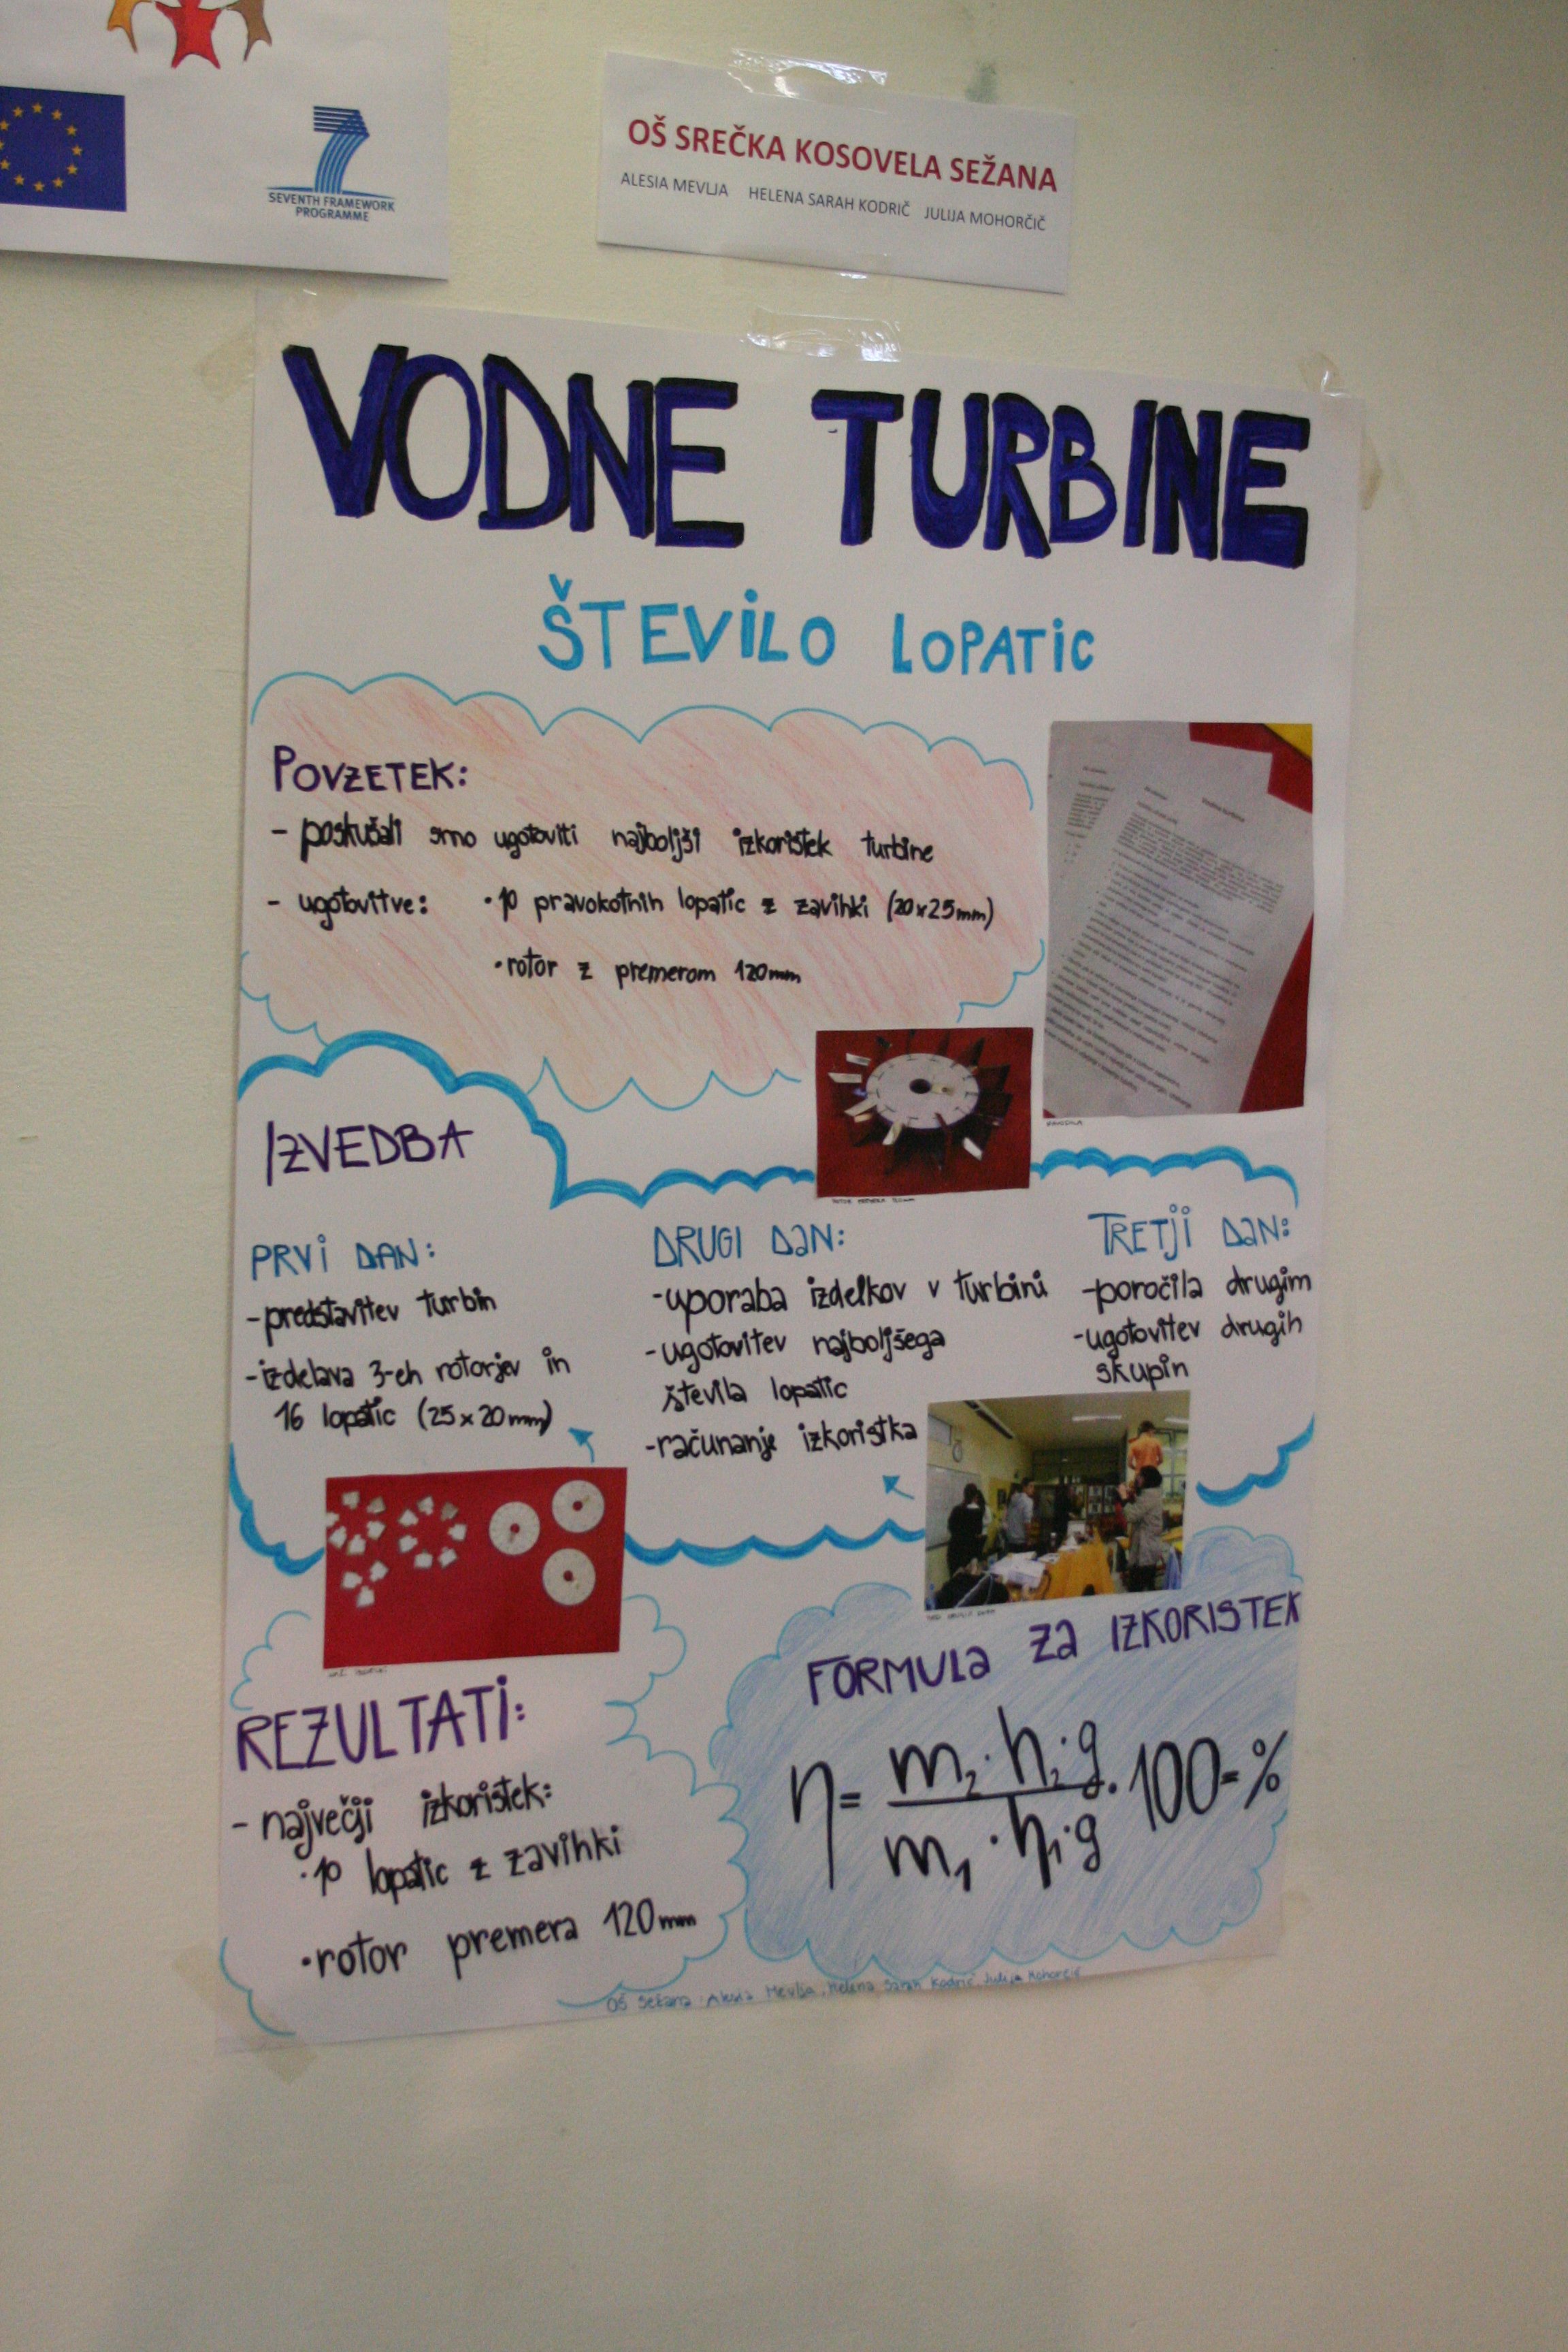 SEVENTH FRAMEWORK
PROGRAMME
OŠ SREČKA KOSOVELA SEŽANA
ALESIA MEVLJA HELENA SARAH KODRIČ JULIJA MOHORČIČ
VODNE TURBINE
ŠTEVILO LOPATIC
POVZETEK:
- poskušali smo ugotoviti najboljši izkoristek turbine
- ugotovitve: • 10 pravokotnih lopatic z zavihki (20x25mm)
• rotor z premerom 120mm
IZVEDBA
PRVI DAN:
- predstavitev turbin
- izdelava 3-eh rotorjev in
16 lopatic (25 x 20 mm)
DRUGI DAN:
- uporaba izdelkov v turbini
- ugotovitev najboljšega
števila lopatic
- računanje izkoristka
TRETJI DAN:
- poročila drugim
- ugotovitev drugih
skupin
REZULTATI:
- največji izkoristek:
• 10 lopatic z zavihki
• rotor premera 120mm
FORMULA ZA IZKORISTEK
η = m₂·h₂·g / m₁·h₁·g · 100 = %
OŠ Sežana: Alesia Mevlja, Helena Sarah Kodrič, Julija Mohorčič